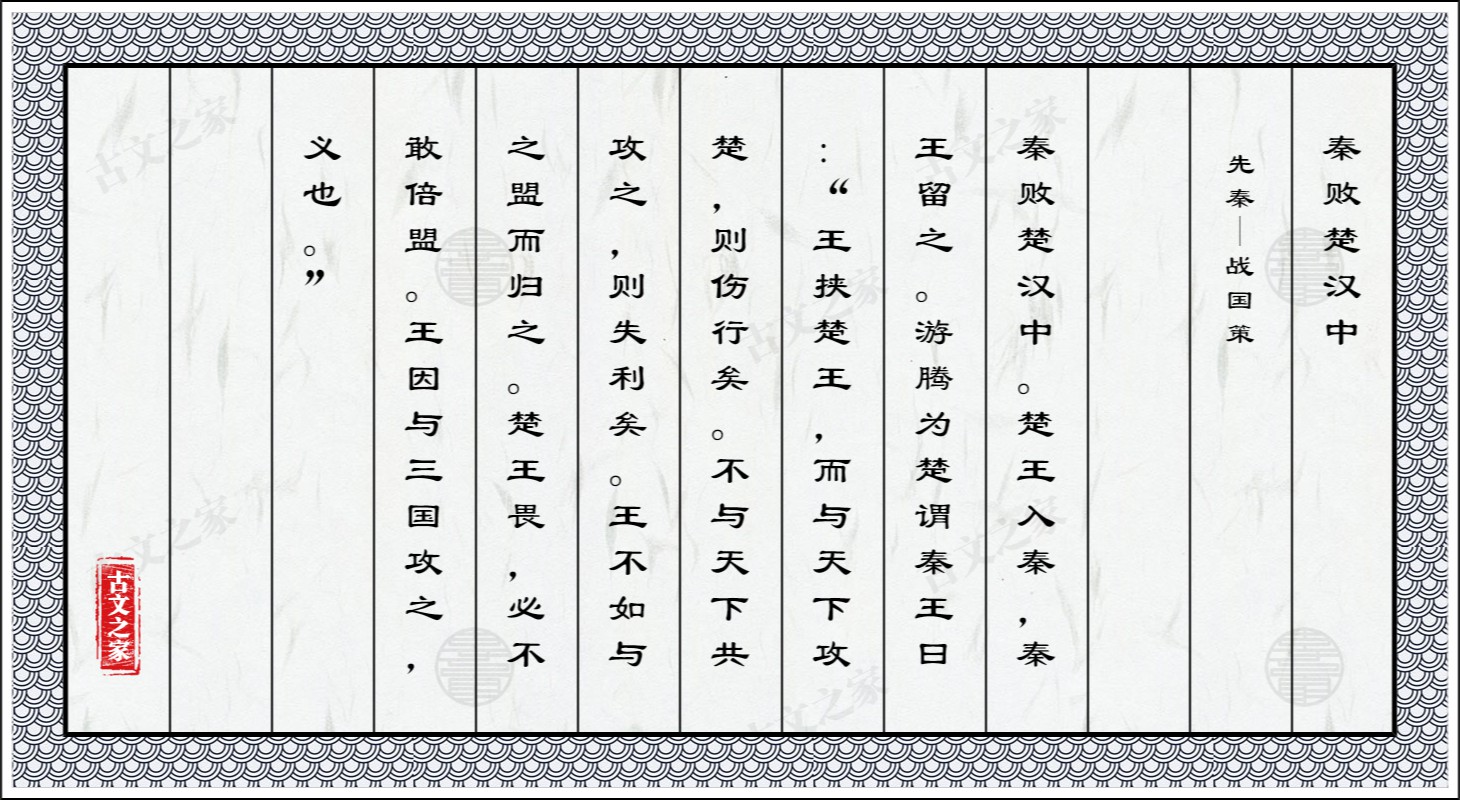 秦败楚汉中
先秦—战国策
秦败楚汉中。楚王入秦，秦
王留之。游腾为楚谓秦王曰
：“王挟楚王，而与天下攻
楚，则伤行矣。不与天下共
攻之，则失利矣。王不如与
之盟而归之。楚王畏，必不
敢倍盟。王因与三国攻之，
义也。”
古文之家